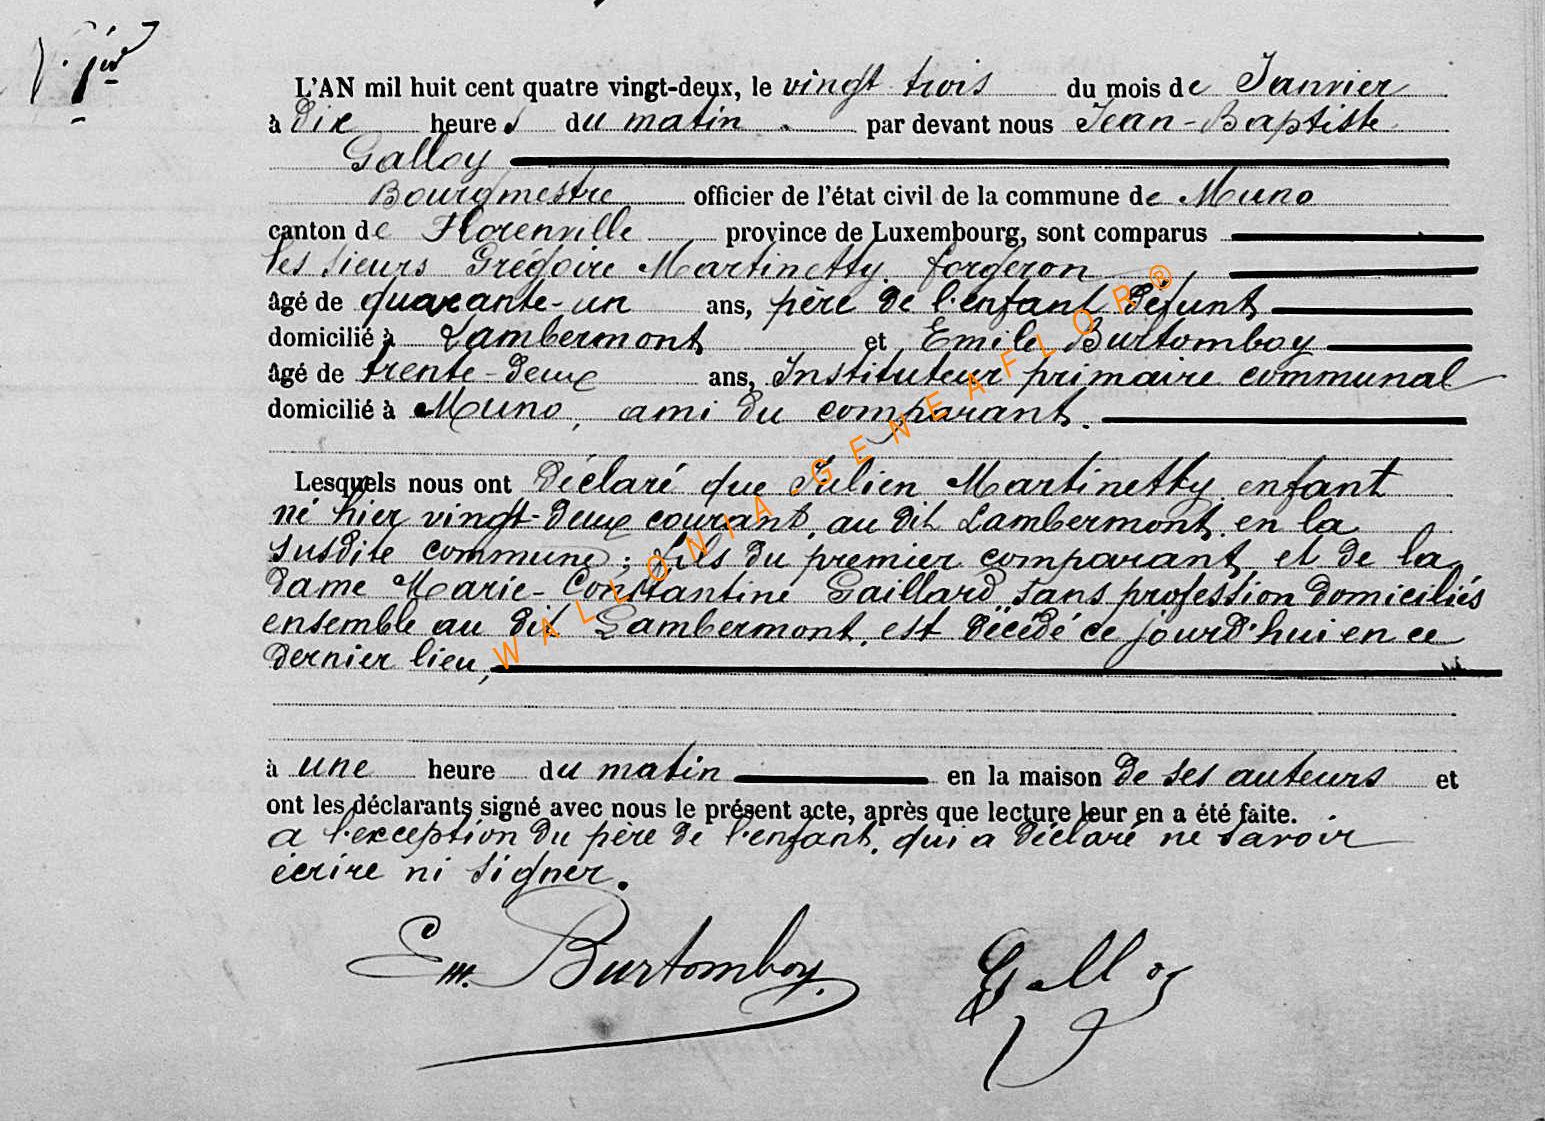 L'AN mil huit cent quatre vingt-deux, le vingt trois du mois de Janvier
à dix heures du matin . par devant nous Jean-Baptiste
Galloy
Bourgmestre officier de l'état civil de la commune de Muno
canton de Florenville province de Luxembourg, sont comparus
les sieurs Grégoire Martinetty, forgeron,
âgé de quarante-un ans, père de l'enfant défunt
domicilié à Lambermont et Emile Burtomboy
âgé de trente-deux ans, Instituteur primaire communal
domicilié à Muno, ami du comparant.
Lesquels nous ont déclaré que Julien Martinetty, enfant
né hier vingt-deux courant, au dit Lambermont, en la
susdite commune; fils du premier comparant, et de la
dame Marie-Constantine Gaillard, sans profession domiciliés
ensemble au dit Lambermont, est décédé ce jourd'hui en ce
dernier lieu,
à une heure du matin en la maison de ses auteurs et
ont les déclarants signé avec nous le présent acte, après que lecture leur en a été faite.
à l'exception du père de l'enfant, qui a déclaré ne savoir
écrire ni signer.
Em. Burtomboy. Galloy
WALLONIA-GENEAFLOR®